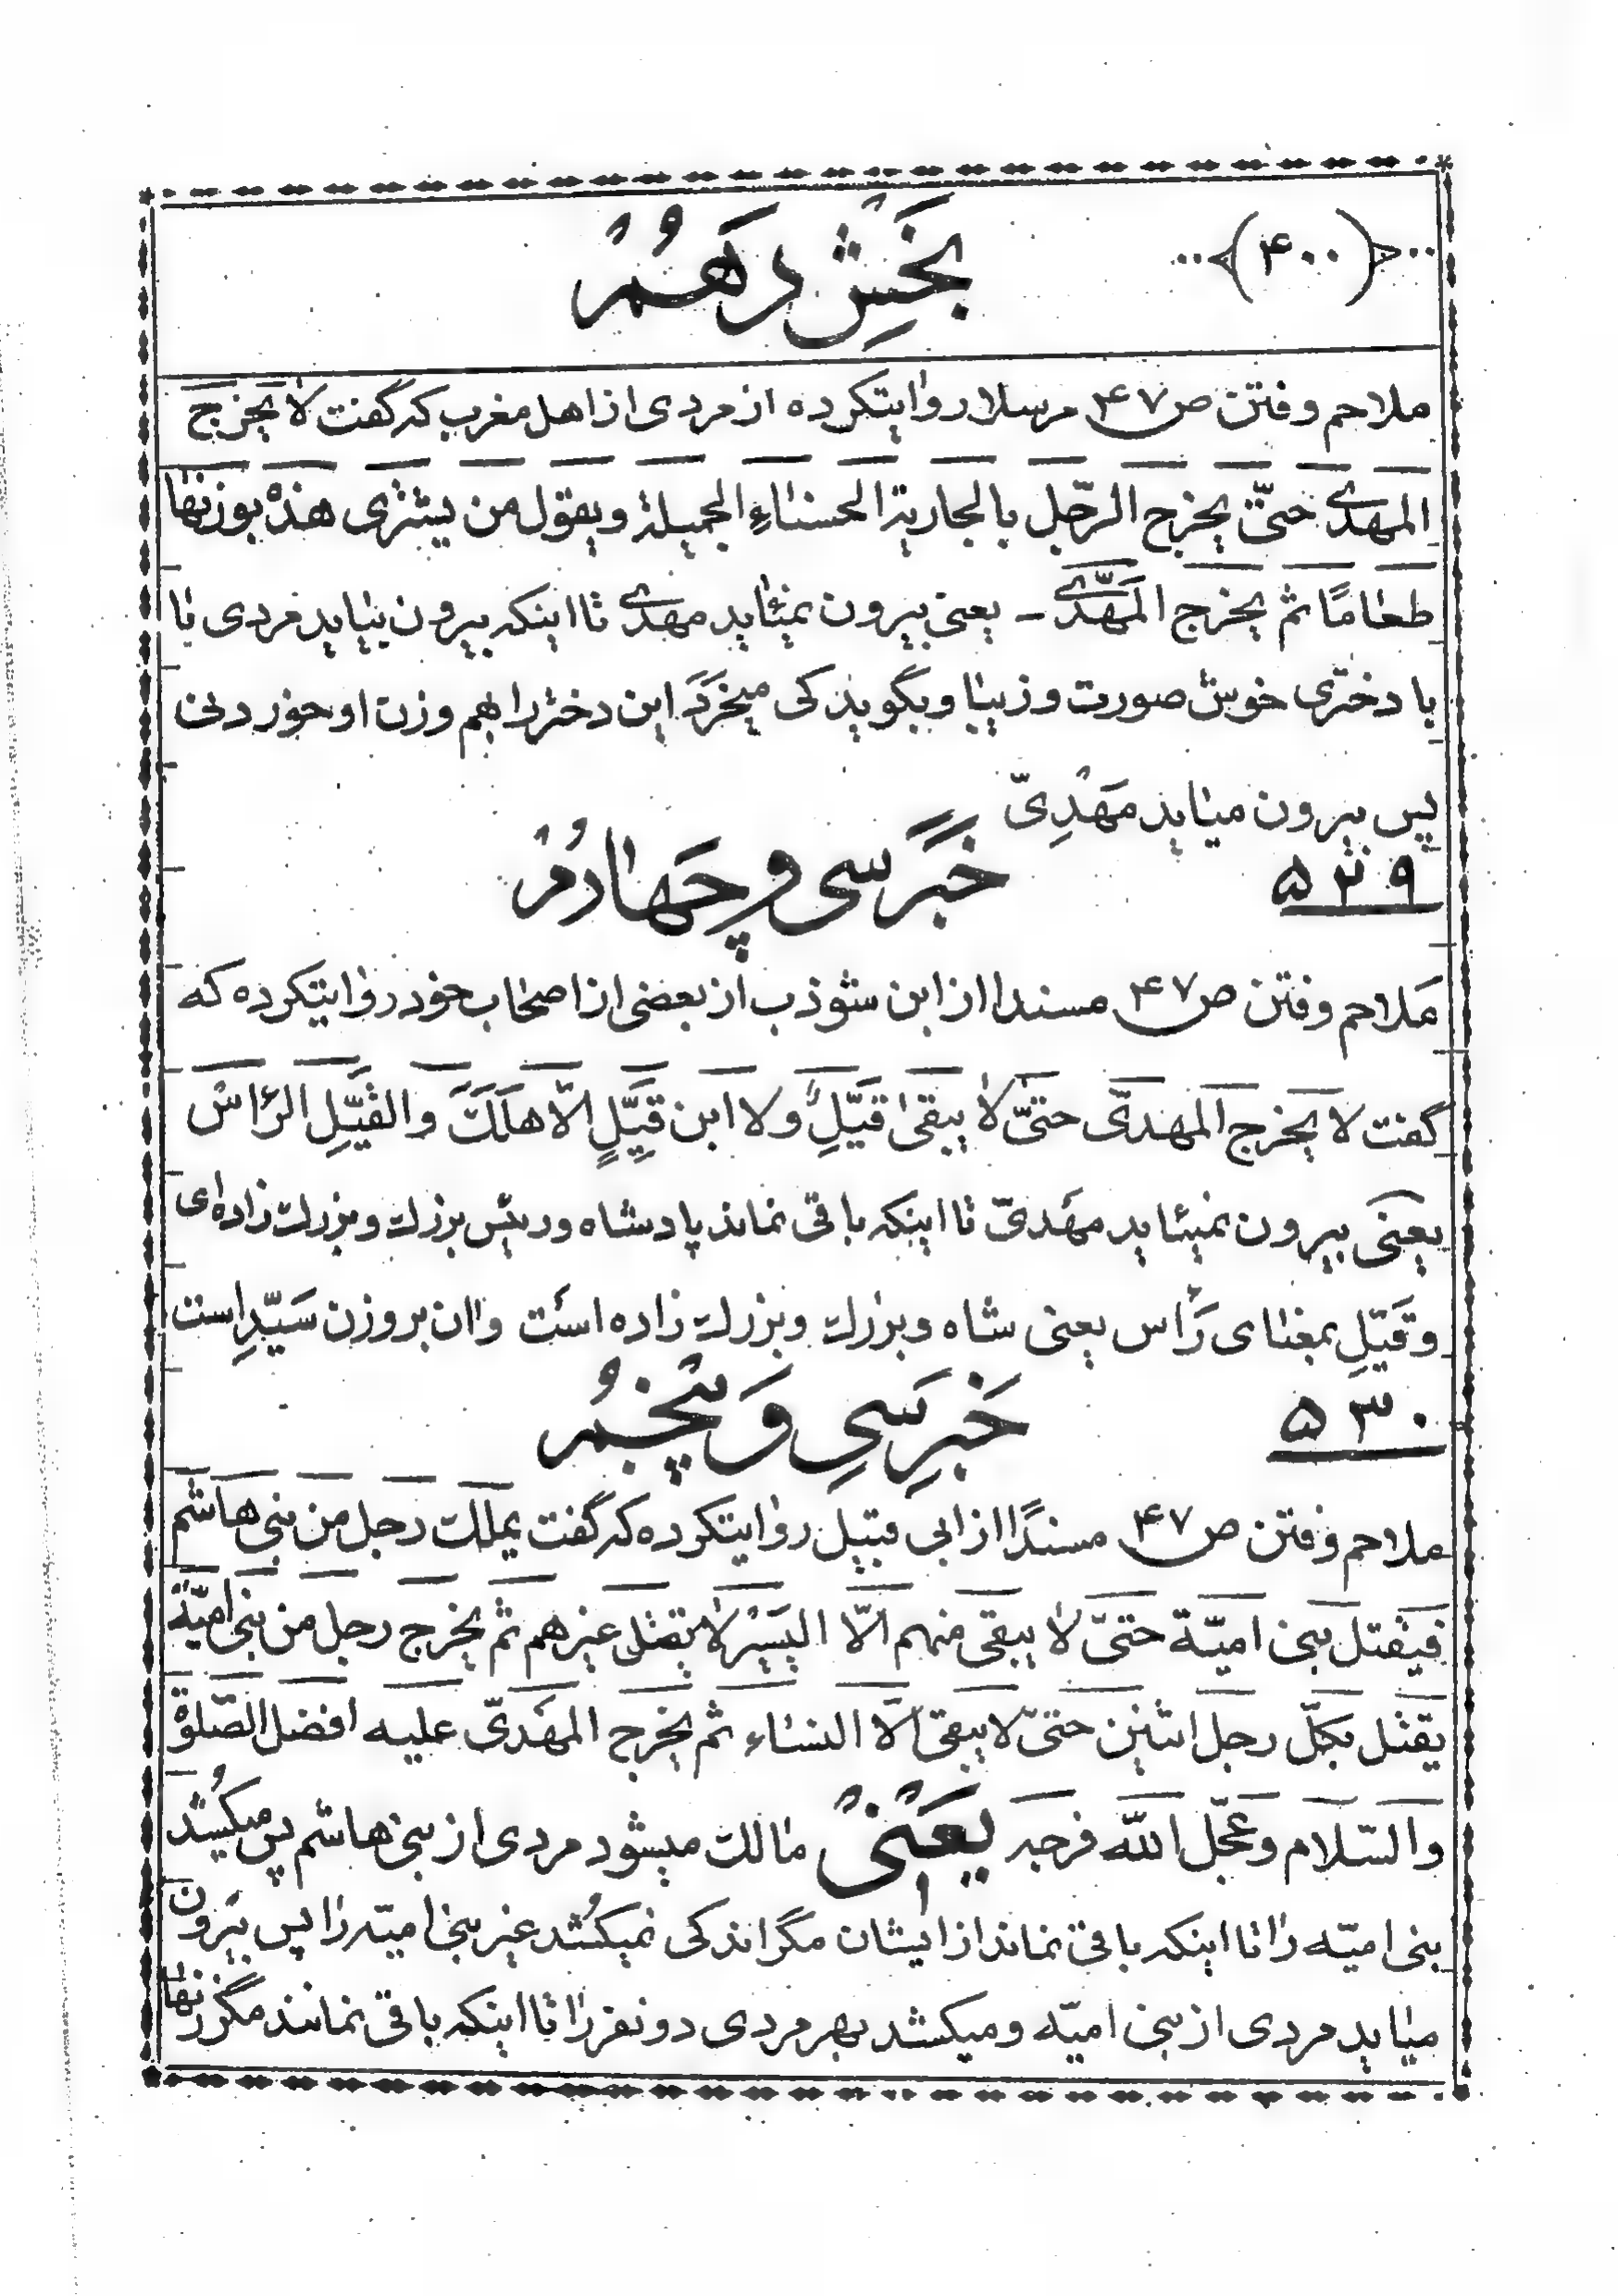 ﴿۴۰۰﴾ بَخشِ دَهُمْ
ملاحم و فتن ص۴۷ مرسلا روایتکرده از مردی از اهل مغرب که گفت لا یَخرج
المهدی حتّی یخرج الرّجل بالجاریة الحسناءِ الجمیلة و یقول من یشتری هذه بوزنها
طعامًا ثم یخرج المَهدّی – یعنی بیرون نمیٔاید مهدی تا اینکه بیرون بیاید مردی با
با دختری خوش صورت و زیبا و بگوید کی میخَرَد این دختر را بهم وزن او خوردنی
پس بیرون میاید مَهْدِیّ
۵۲۹ خَبَر سی و چَهارُمْ
مَلاحم و فتن ص۴۷ مسندا از ابن شوذب از بعضی از اصحاب خود روایتکرده که
گفت لا یَخرج المهدیّ حتّی لا یبقی قَیّلِ ولا ابن قَیِّلٍ الّا هلَكَ والقَیّلِ الرّأسْ
یعنَی بیرون نمیٔاید مهَدیّ تا اینکه باقی نماند پادشاه و رئیس بزرك و بزرك زاده‌ای
و قَیّلِ بمعنای رَأس یعنی شاه و بزرك و بزرك زاده اسَت وان بر وزن سَیّدِ است
۵۳۰ خَبرِ سَیِ وَ پَنجُمْ
ملاحم و فتن ص۴۷ مسندًا از ابی قبیل روایتکرده که گفت یملك رَجل من بَنی هاشم
فیَقتل بنی امیّة حتّی لا یبقی منهم الّا الیَسیر لا یقتل غیرهم ثم یخرج رجل من بَنی امیّة
یقتل بکلّ رجل اثنین حتّی لا یبقی الّا النساء ثم یخرج المهَدیّ علیه افضل الصّلوة
والسّلام و عجّل اللّه فرجه یَعْنی مالك میشود مردی از بنی هاشم پس میکُشد
بنی امیّه را تا اینکه باقی نماند از ایشان مگر اندکی نمیکُشد غیر بنی امیّه را پس بیرَون
میاید مردی از بنی امیّه و میکشد بهر مردی دو نفر را تا اینکه باقی نمانند مگر زنها